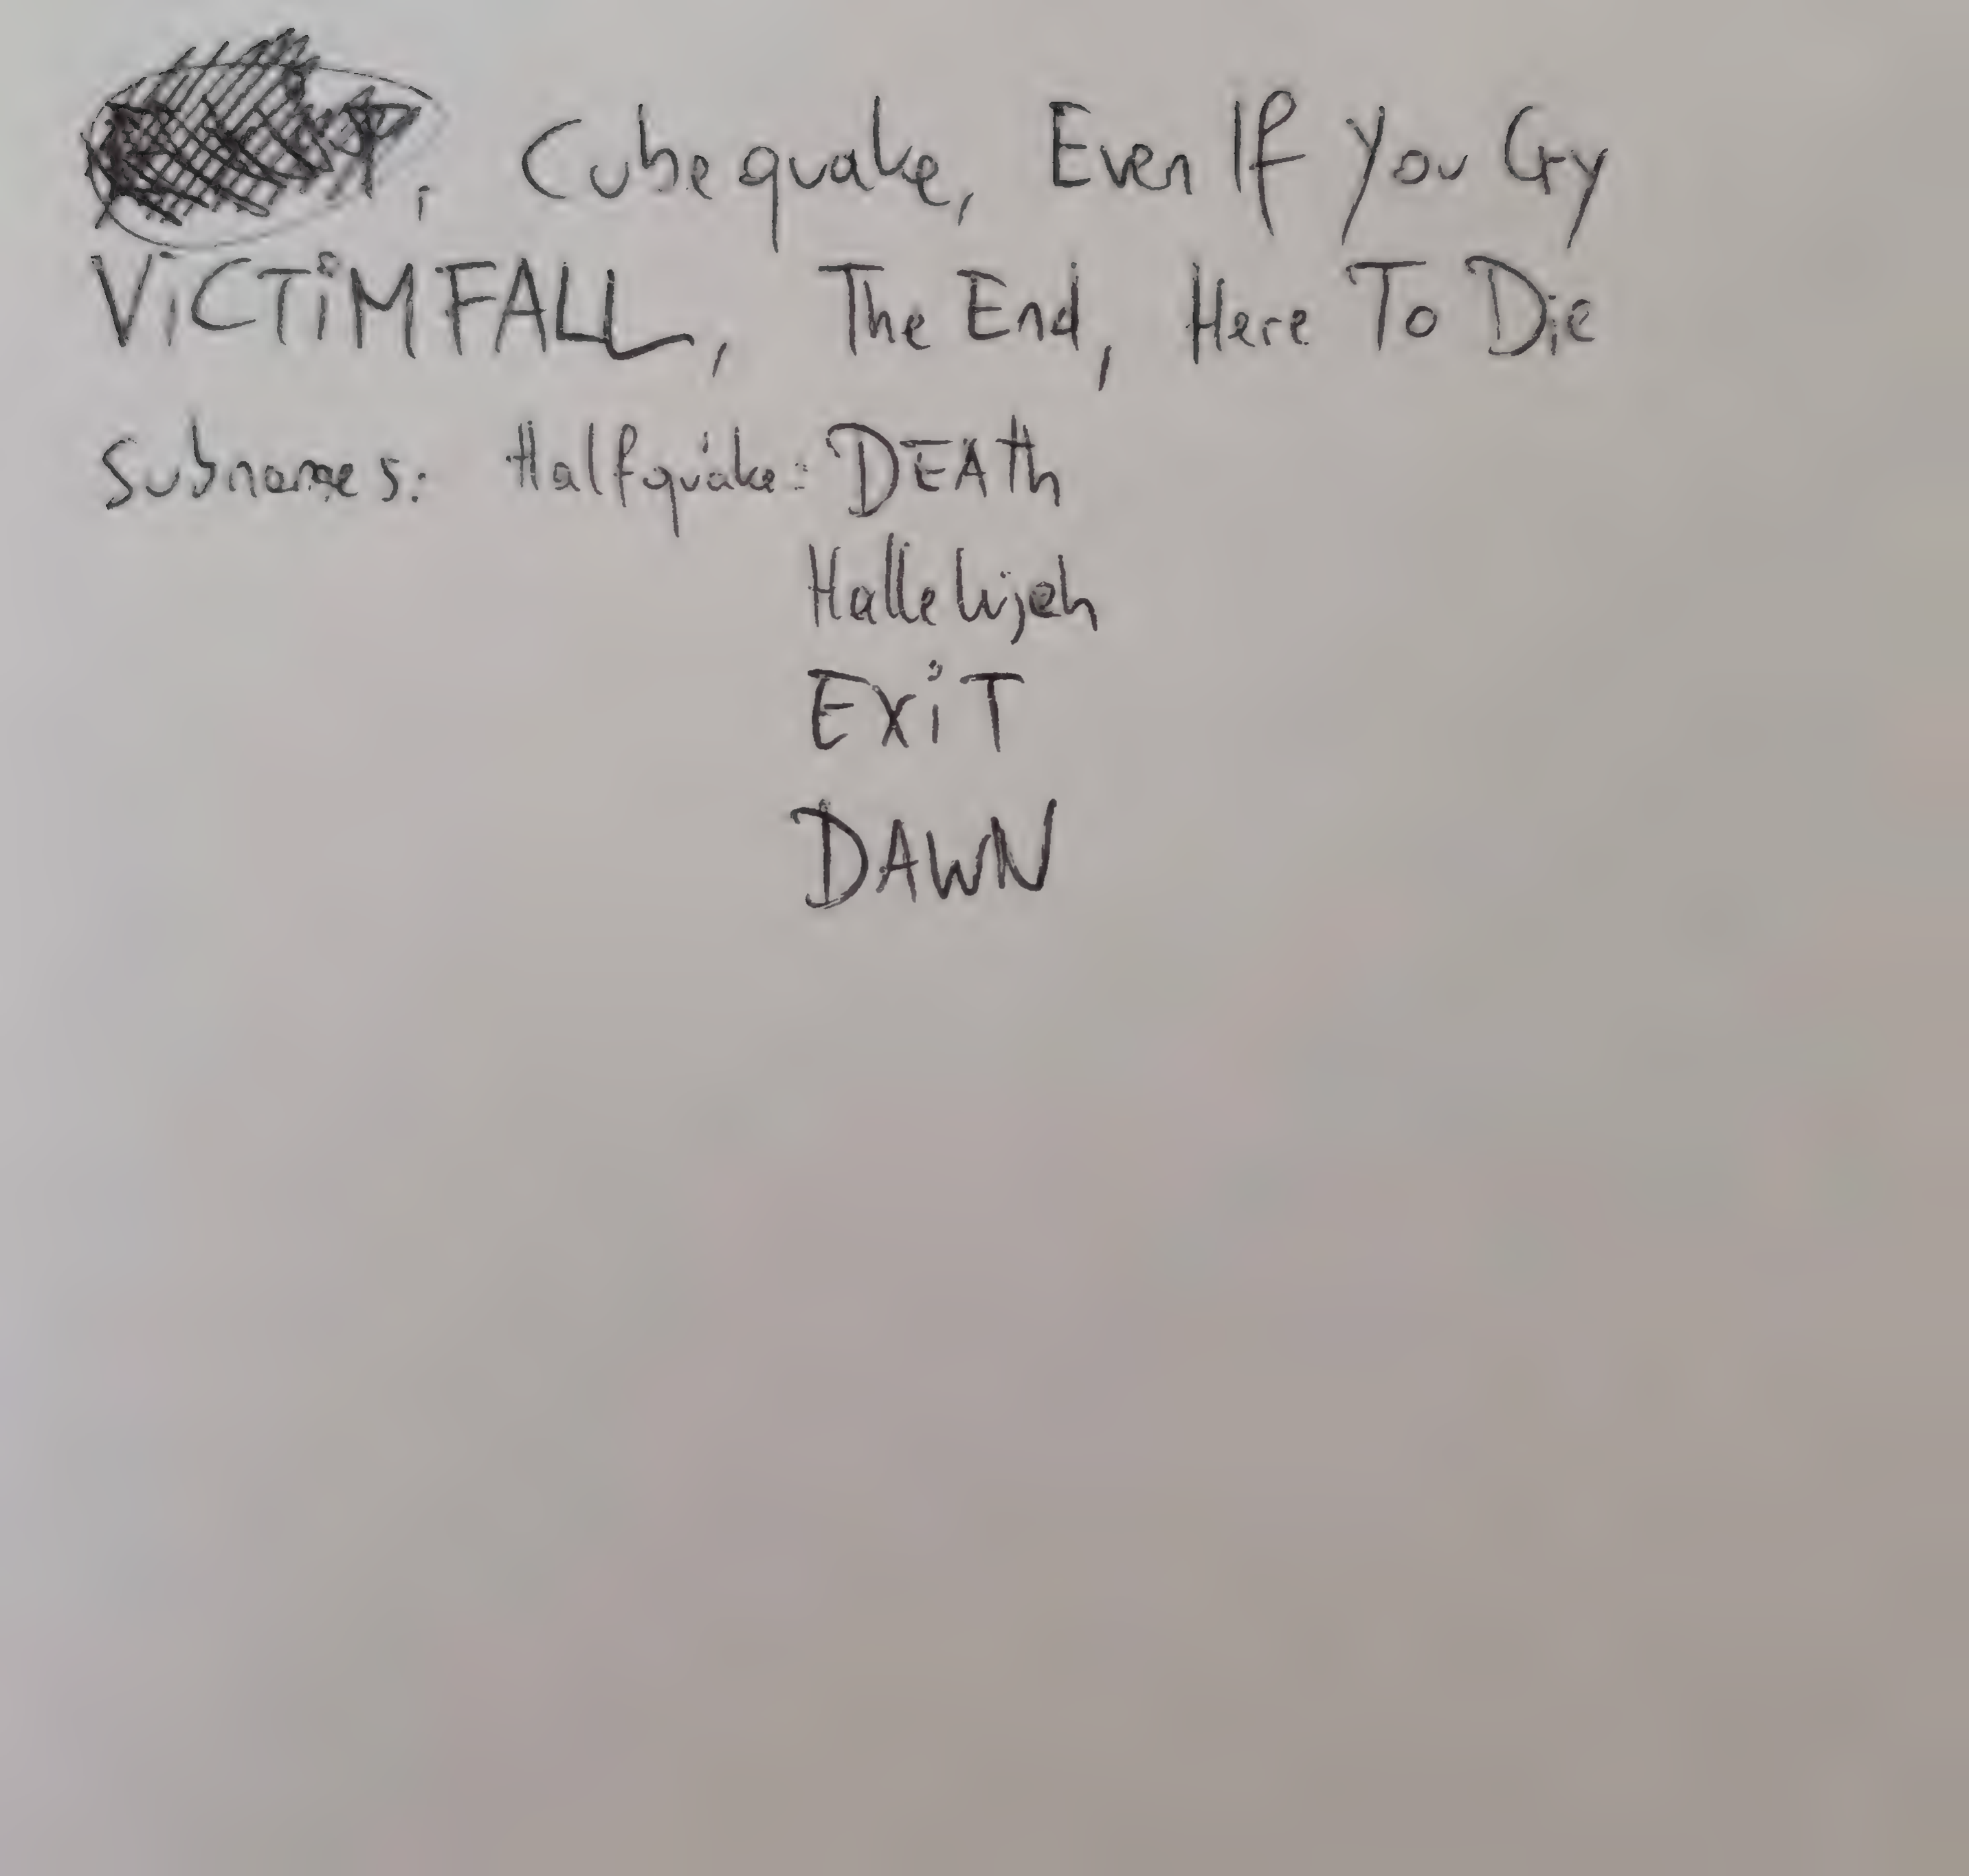 , Cubequake, Even If You Cry
ViCTiMFALL, The End, Here To Die
Subnames: Halfquake: DEATh
Hallelujah
EXiT
DAWN